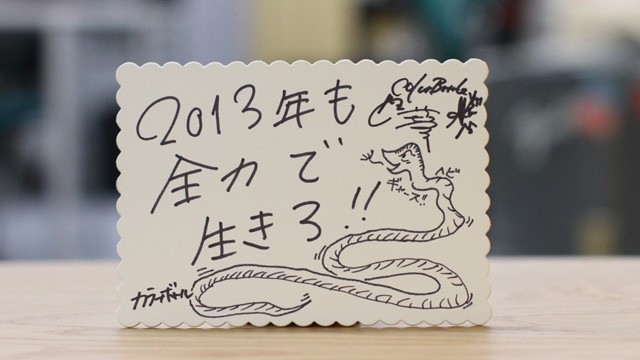 2013年も
全力で
生きろ!!
ColorBottle
ヘビ
ギャース!!
カラーボトル